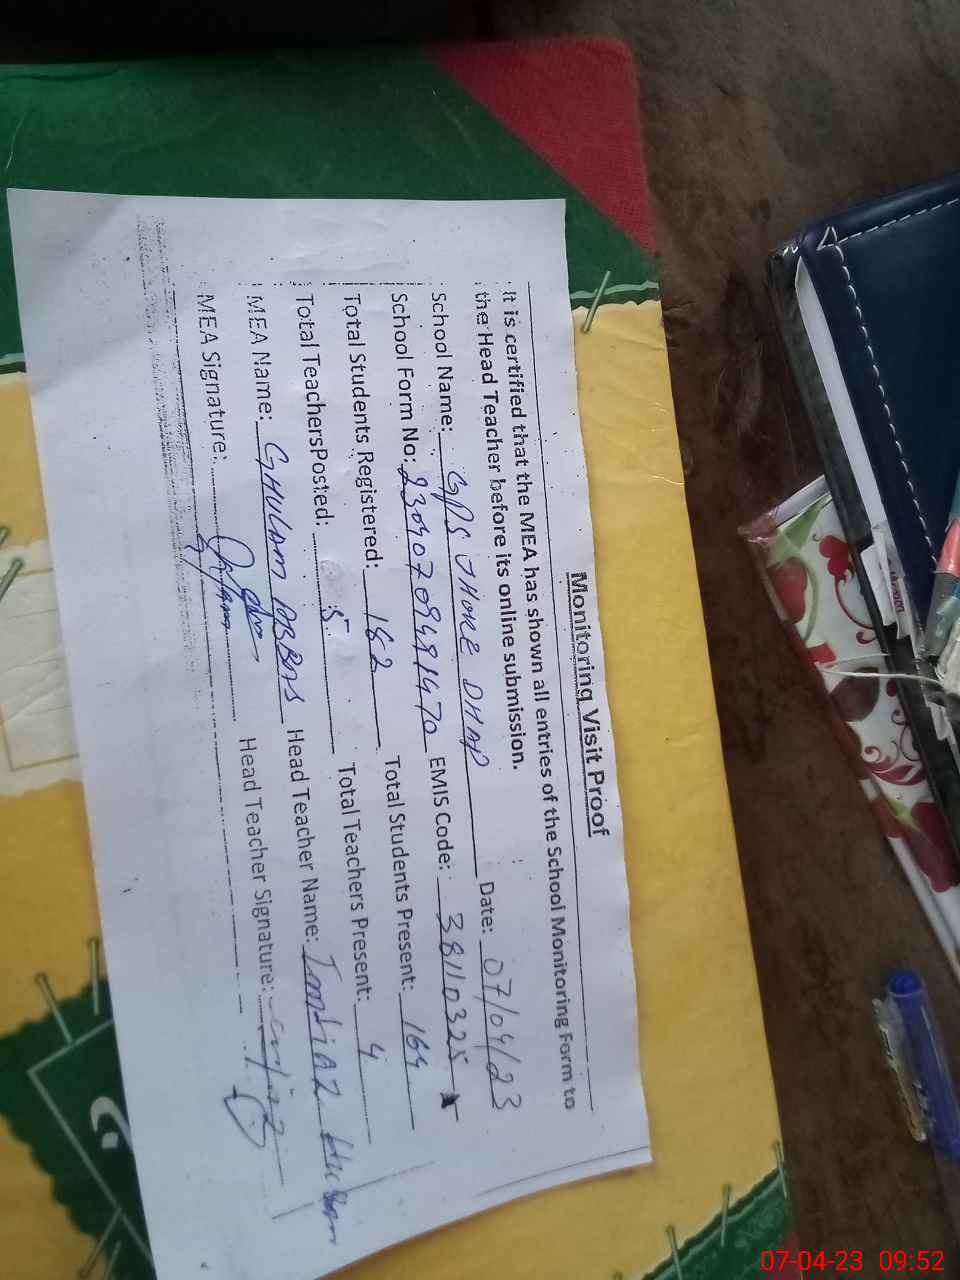 Monitoring Visit Proof
It is certified that the MEA has shown all entries of the School Monitoring Form to
the Head Teacher before its online submission.
School Name: GPS JHOKE DHAP Date: 07/04/23
School Form No: 230407 EMIS Code: 38110325
Total Students Registered: 182 Total Students Present: 164
Total TeachersPosted: 5 Total Teachers Present: 4
MEA Name: GHULAM ABBAS Head Teacher Name: Imtiaz Hussain
MEA Signature: Head Teacher Signature:
07-04-23 09:52